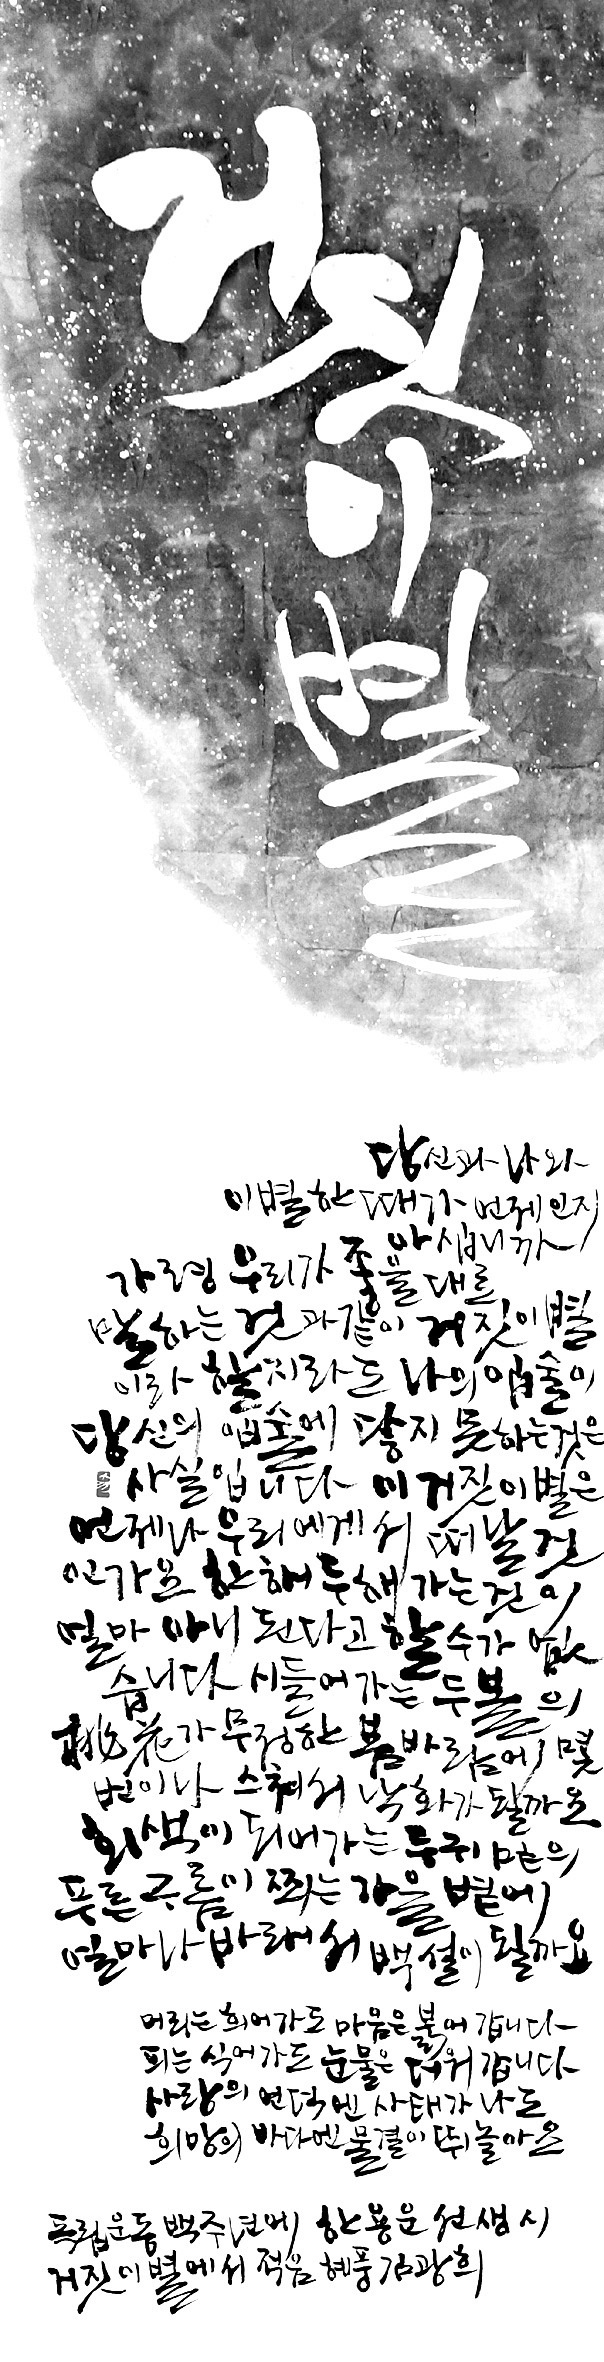 거짓이별
당신과 나와
이별한 때가 언제인지
아십니까
가령 우리가 좋을대로
말하는 것과 같이 거짓이별
이라 할지라도 나의 입술이
당신의 입술에 닿지 못하는 것은
사실입니다 이 거짓이별은
언제나 우리에게서 떠날 것
인가요 한해 두해 가는 것이
얼마 아니 된다고 할 수가 없
습니다 시들어가는 두볼의
桃花가 무정한 봄바람에 몇
번이나 스쳐서 낙화가 될까요
회색이 되어가는 두귀밑의
푸른 구름이 쪼이는 가을볕에
얼마나 바래서 백설이 될까요
머리는 희어가도 마음은 붉어 갑니다
피는 식어가도 눈물은 더워 갑니다
사랑의 언덕엔 사태가 나도
희망의 바다엔 물결이 뛰놀아요
독립운동 백주년에 한용운 선생 시
거짓이별에서 적음 혜풍 김광희